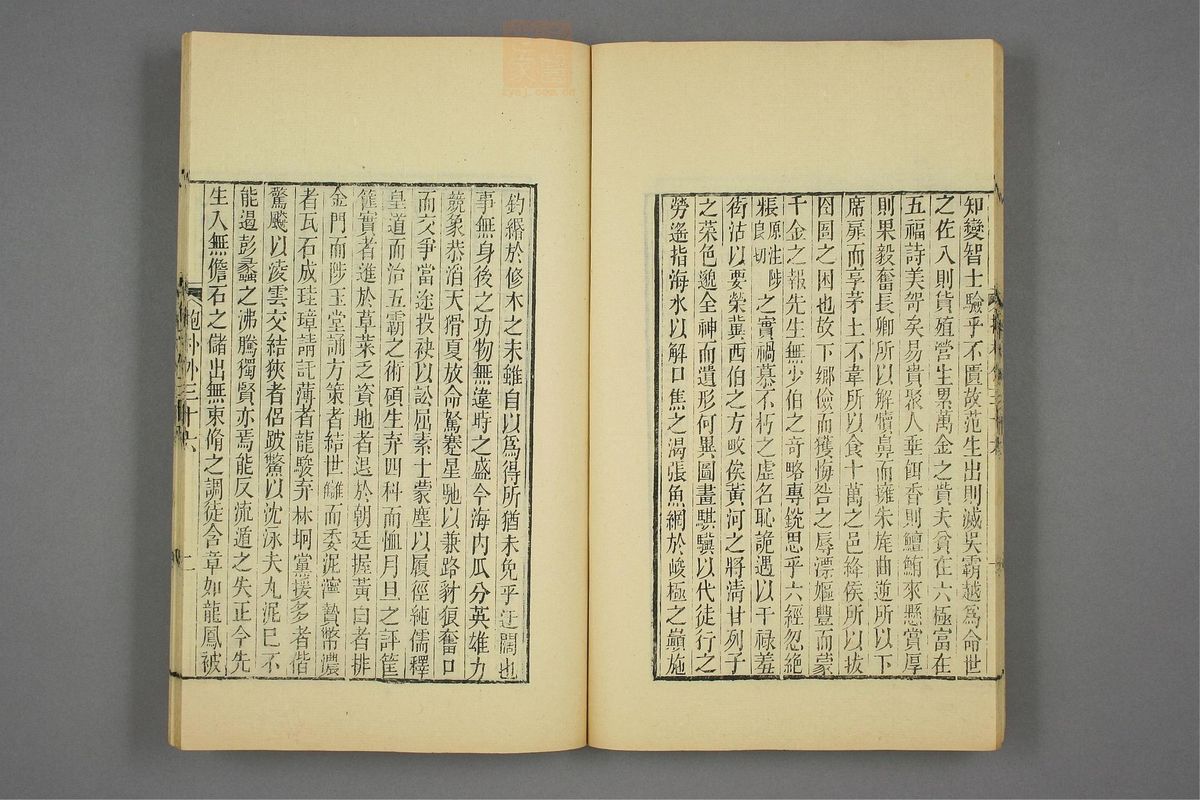 知變智士驗乎不匱故范生出則滅吳霸越爲命世
之佐入則貨殖營生累萬金之貲夫貧在六極富在
五福詩美哿矣易貴聚人垂餌香則鱣鮪來懸賞厚
則果毅奮長卿所以解犢鼻而擁朱旄曲逆所以下
席扉而享茅土不韋所以食十萬之邑絳侯所以拔
囹圄之困也故下鄉儉而獲悔咎之辱漂嫗豐而蒙
千金之報先生無少伯之奇略專銳思乎六經忽絶
粻原注陟良切之實禍慕不朽之虛名恥詭遇以干祿羞
衒沽以要榮冀西伯之方畋俟黃河之將淸甘列子
之菜色邈全神而遺形何異圖畫騏驥以代徒行之
勞遙指海水以解口焦之渴張魚網於峻極之巓施
釣緡於修木之末雖自以爲得所猶未免乎迂闊也
事無身後之功物無違時之盛今海內瓜分英雄力
競象恭滔天猾夏放命駑蹇星馳以兼路豺狼奮口
而交爭當途投袂以訟屈素士蒙塵以履徑純儒釋
皇道而治五霸之術碩生弃四科而恤月旦之評筐
篚實者進於草萊乏資地者退於朝廷握黃白者排
金門而陟玉堂誦方策者結世讎而委泥濘贄幣濃
者瓦石成珪璋請託薄者龍駿弃林坰黨援多者偕
驚飈以凌雲交結狹者侶跛鱉以沈泳夫丸泥已不
能遏彭蠡之沸騰獨賢亦焉能反流遁之失正今先
生入無儋石之儲出無束脩之調徒含章如龍鳳被
抱朴外三十六
二